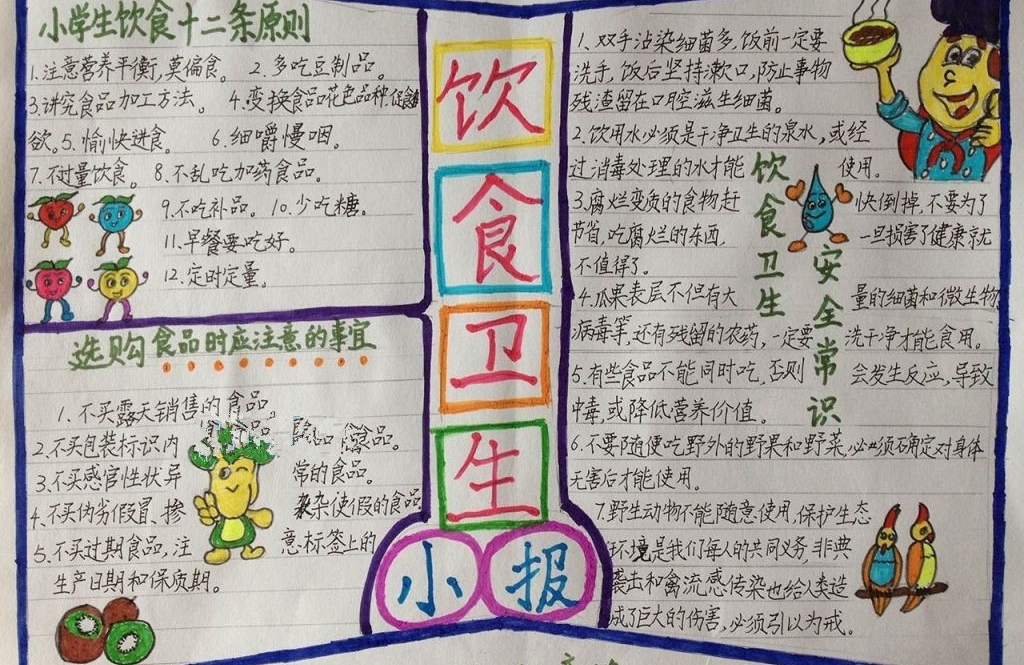 小学生饮食十二条原则
1.注意营养平衡,莫偏食。 2.多吃豆制品。
3.讲究食品加工方法。 4.变换食品花色品种,促食
欲。5.愉快进食。 6.细嚼慢咽。
7.不过量饮食。 8.不乱吃加药食品。
9.不吃补品。 10.少吃糖。
11.早餐要吃好。
12.定时定量。
选购食品时应注意的事宜
1.不买露天销售的食品。
2.不买包装标识内 食品。
3.不买感官性状异 常的食品。
4.不买伪劣假冒、掺 杂使假的食品
5.不买过期食品,注 意标签上的
生产日期和保质期。
饮
食
卫
生
小报
1、双手沾染细菌多,饭前一定要
洗手,饭后坚持漱口,防止事物
残渣留在口腔滋生细菌。
2.饮用水必须是干净卫生的泉水,或经
过消毒处理的水才能 使用。
3.腐烂变质的食物赶 快倒掉,不要为了
节省,吃腐烂的东西, 一旦损害了健康就
不值得了。
4.瓜果表层不但有大 量的细菌和微生物
病毒等,还有残留的农药,一定要 洗干净才能食用。
5.有些食品不能同时吃,否则 会发生反应,导致
中毒或降低营养价值。
6.不要随便吃野外的野果和野菜,必须确定对身体
无害后才能使用。
7.野生动物不能随意使用,保护生态
环境是我们每人的共同义务,非典
袭击和禽流感传染也给人类造
成了巨大的伤害,必须引以为戒。
饮食卫生
安全常识